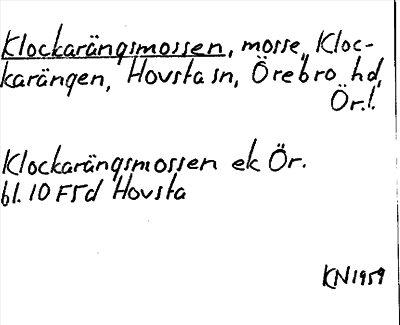 Klockarängsmossen, mosse, Kloc-
karängen, Hovsta sn, Örebro hd,
Ör.l.
Klockarängsmossen ek Ör.
bl. 10 F5d Hovsta
KN 1959